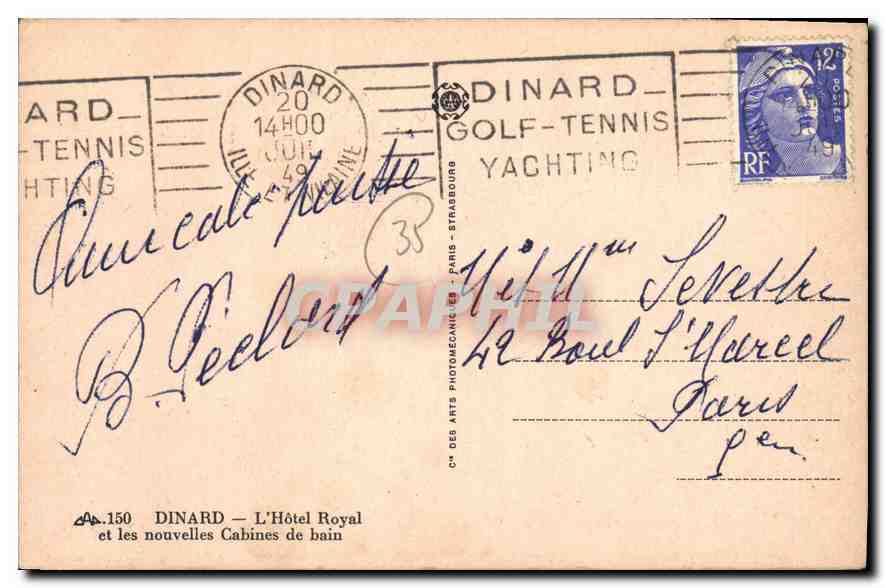 ARD
-TENNIS
HTING
DINARD
20
14H00
JUIL
49
ILLE ET VILAINE
DINARD
GOLF-TENNIS
YACHTING
12F
POSTES
RF
49
Amicale pensée
35
B. Péclard
CPAPHIL
Cie DES ARTS PHOTOMÉCANIQUES - PARIS - STRASBOURG
Mr et Mme Sevestre
42 Boul St Marcel
Paris
5em
150 DINARD — L'Hôtel Royal
et les nouvelles Cabines de bain